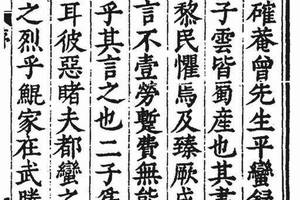 確菴曾先生平蠻錄
子雲皆蜀産也其書
黎民懼焉及臻厥成
言不壹勞蹔費無能
乎其言之也二子
耳彼惡睹夫都蠻之
之烈乎鯤家在武勝
序